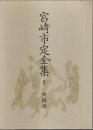 宮崎市定全集
1
中国史